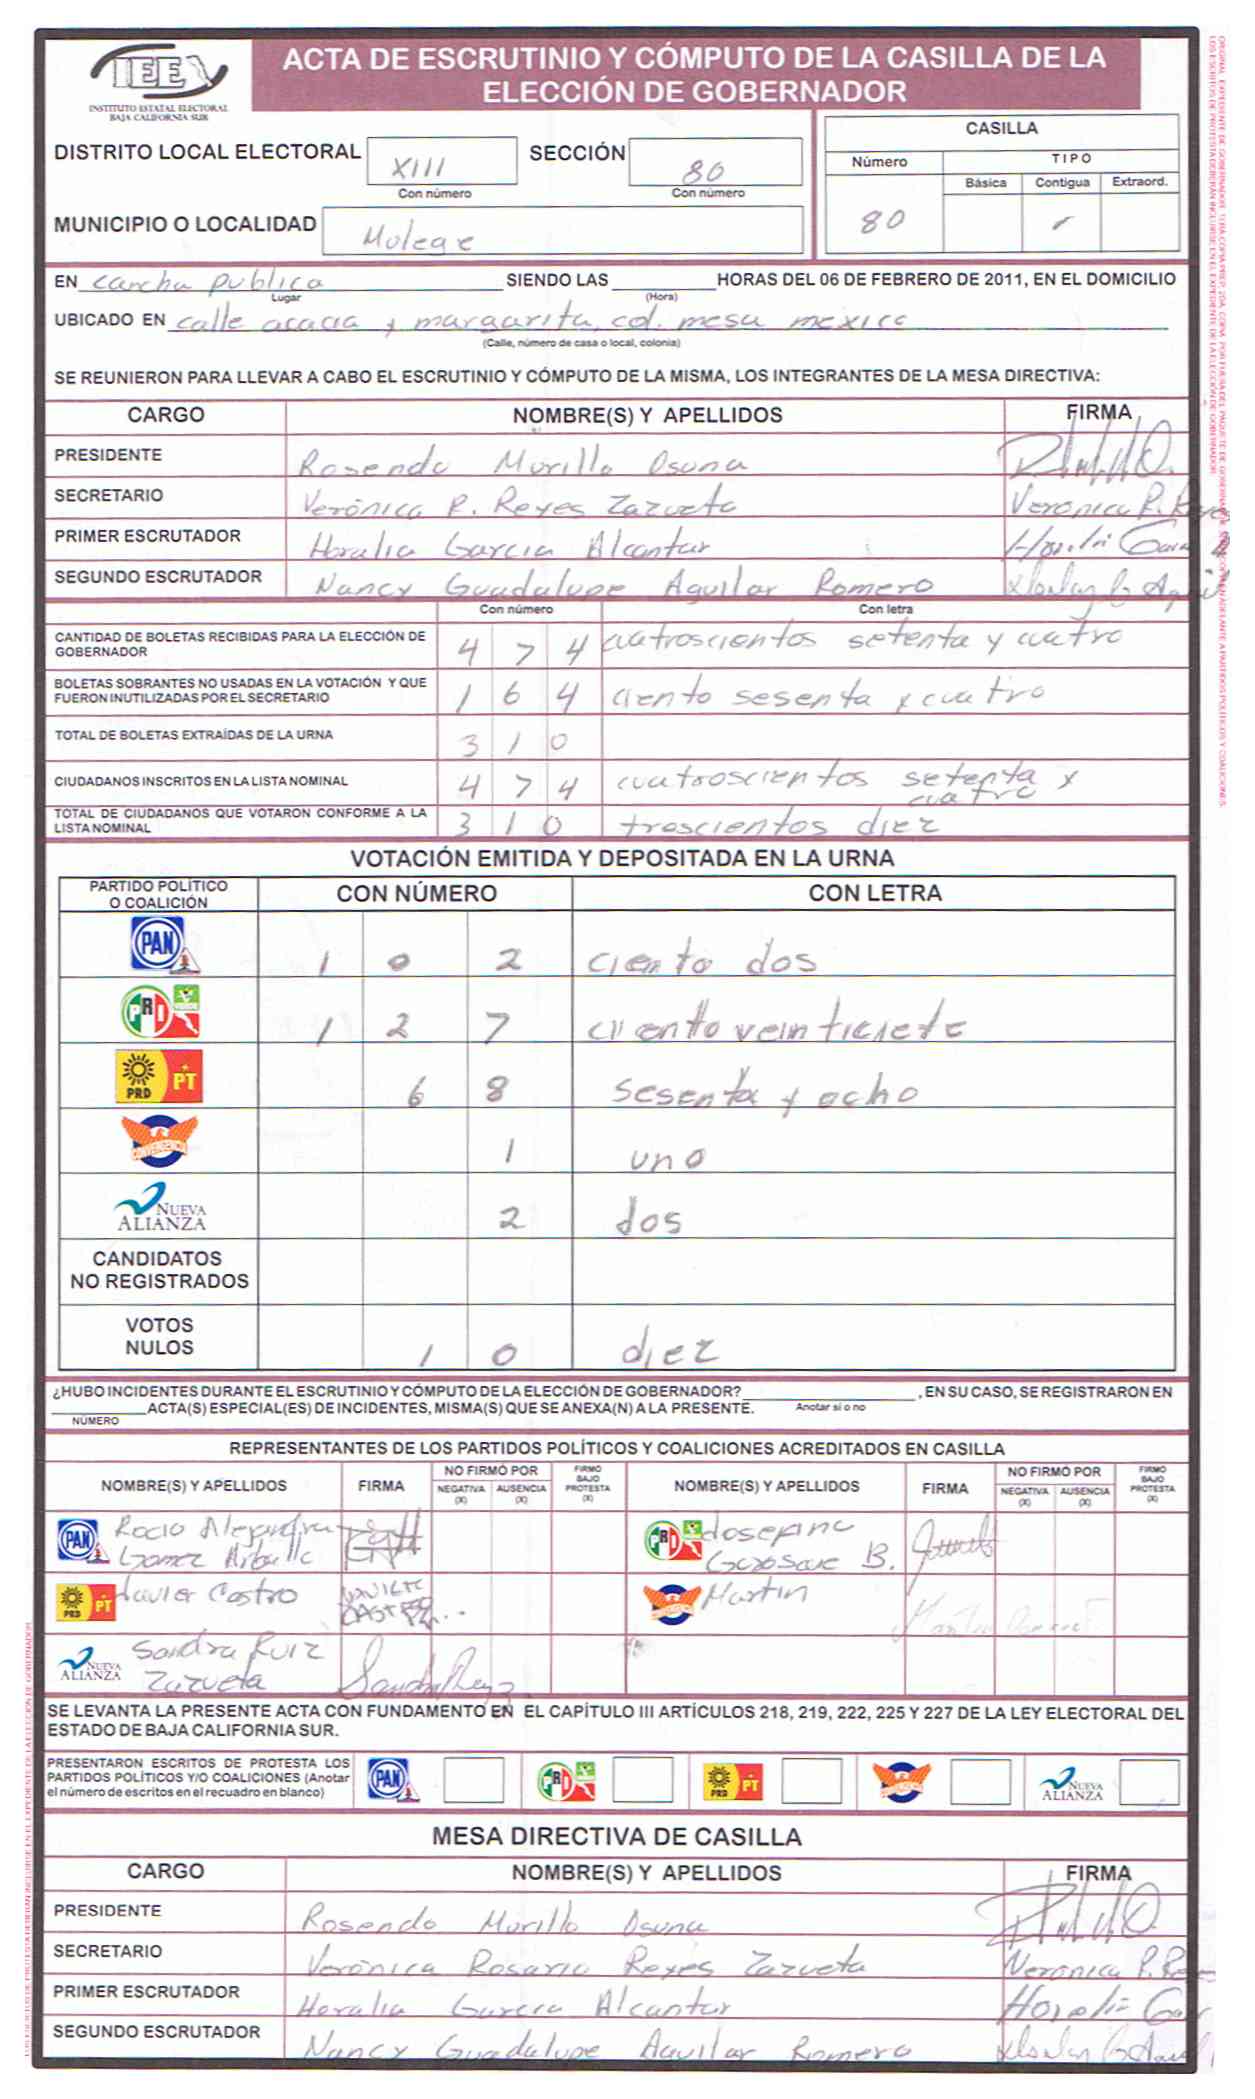 ACTA DE ESCRUTINIO Y CÓMPUTO DE LA CASILLA DE LA
ELECCIÓN DE GOBERNADOR
INSTITUTO ESTATAL ELECTORAL
BAJA CALIFORNIA SUR
DISTRITO LOCAL ELECTORAL XIII SECCIÓN 80
Con número Con número
MUNICIPIO O LOCALIDAD Mulege
CASILLA
Número TIPO
Básica Contigua Extraord.
80
EN cancha publica SIENDO LAS HORAS DEL 06 DE FEBRERO DE 2011, EN EL DOMICILIO
Lugar (Hora)
UBICADO EN calle acacia y margarita, col. mesa mexico
(Calle, número de casa o local, colonia)
SE REUNIERON PARA LLEVAR A CABO EL ESCRUTINIO Y CÓMPUTO DE LA MISMA, LOS INTEGRANTES DE LA MESA DIRECTIVA:
CARGO NOMBRE(S) Y APELLIDOS FIRMA
PRESIDENTE Rosendo Murillo Osuna
SECRETARIO Verónica R. Reyes Zazueta Veronica R. Reyes
PRIMER ESCRUTADOR Horalia Garcia Alcantar
SEGUNDO ESCRUTADOR Nancy Guadalupe Aguilar Romero
Con número Con letra
CANTIDAD DE BOLETAS RECIBIDAS PARA LA ELECCIÓN DE
GOBERNADOR 4 7 4 cuatroscientos setenta y cuatro
BOLETAS SOBRANTES NO USADAS EN LA VOTACIÓN Y QUE
FUERON INUTILIZADAS POR EL SECRETARIO 1 6 4 ciento sesenta y cuatro
TOTAL DE BOLETAS EXTRAÍDAS DE LA URNA 3 1 0
CIUDADANOS INSCRITOS EN LA LISTA NOMINAL 4 7 4 cuatroscientos setenta y
cuatro
TOTAL DE CIUDADANOS QUE VOTARON CONFORME A LA
LISTA NOMINAL 3 1 0 troscientos diez
VOTACIÓN EMITIDA Y DEPOSITADA EN LA URNA
PARTIDO POLÍTICO
O COALICIÓN CON NÚMERO CON LETRA
PAN 1 0 2 ciento dos
PRI VERDE 1 2 7 ciento veinticiete
PRD PT 6 8 sesenta y ocho
CONVERGENCIA 1 uno
NUEVA
ALIANZA 2 dos
CANDIDATOS
NO REGISTRADOS
VOTOS
NULOS 1 0 diez
¿HUBO INCIDENTES DURANTE EL ESCRUTINIO Y CÓMPUTO DE LA ELECCIÓN DE GOBERNADOR? , EN SU CASO, SE REGISTRARON EN
ACTA(S) ESPECIAL(ES) DE INCIDENTES, MISMA(S) QUE SE ANEXA(N) A LA PRESENTE. Anotar si o no
NÚMERO
REPRESENTANTES DE LOS PARTIDOS POLÍTICOS Y COALICIONES ACREDITADOS EN CASILLA
NOMBRE(S) Y APELLIDOS FIRMA NO FIRMÓ POR NEGATIVA (X) AUSENCIA (X) FIRMÓ BAJO PROTESTA (X) NOMBRE(S) Y APELLIDOS FIRMA NO FIRMÓ POR NEGATIVA (X) AUSENCIA (X) FIRMÓ BAJO PROTESTA (X)
PAN Rocio Alejandra
Gomez
PRI Josefina
B.
PRD PT Javier Castro JAVIER
CASTRO
Martin
NUEVA
ALIANZA Sandra Ruiz
Zazueta
SE LEVANTA LA PRESENTE ACTA CON FUNDAMENTO EN EL CAPÍTULO III ARTÍCULOS 218, 219, 222, 225 Y 227 DE LA LEY ELECTORAL DEL
ESTADO DE BAJA CALIFORNIA SUR.
PRESENTARON ESCRITOS DE PROTESTA LOS
PARTIDOS POLÍTICOS Y/O COALICIONES (Anotar
el número de escritos en el recuadro en blanco)
PAN PRI PRD PT NUEVA ALIANZA
MESA DIRECTIVA DE CASILLA
CARGO NOMBRE(S) Y APELLIDOS FIRMA
PRESIDENTE Rosendo Murillo Osuna
SECRETARIO Verónica Rosario Reyes Zazueta Veronica R. Reyes
PRIMER ESCRUTADOR Horalia Garcia Alcantar
SEGUNDO ESCRUTADOR Nancy Guadalupe Aguilar Romero